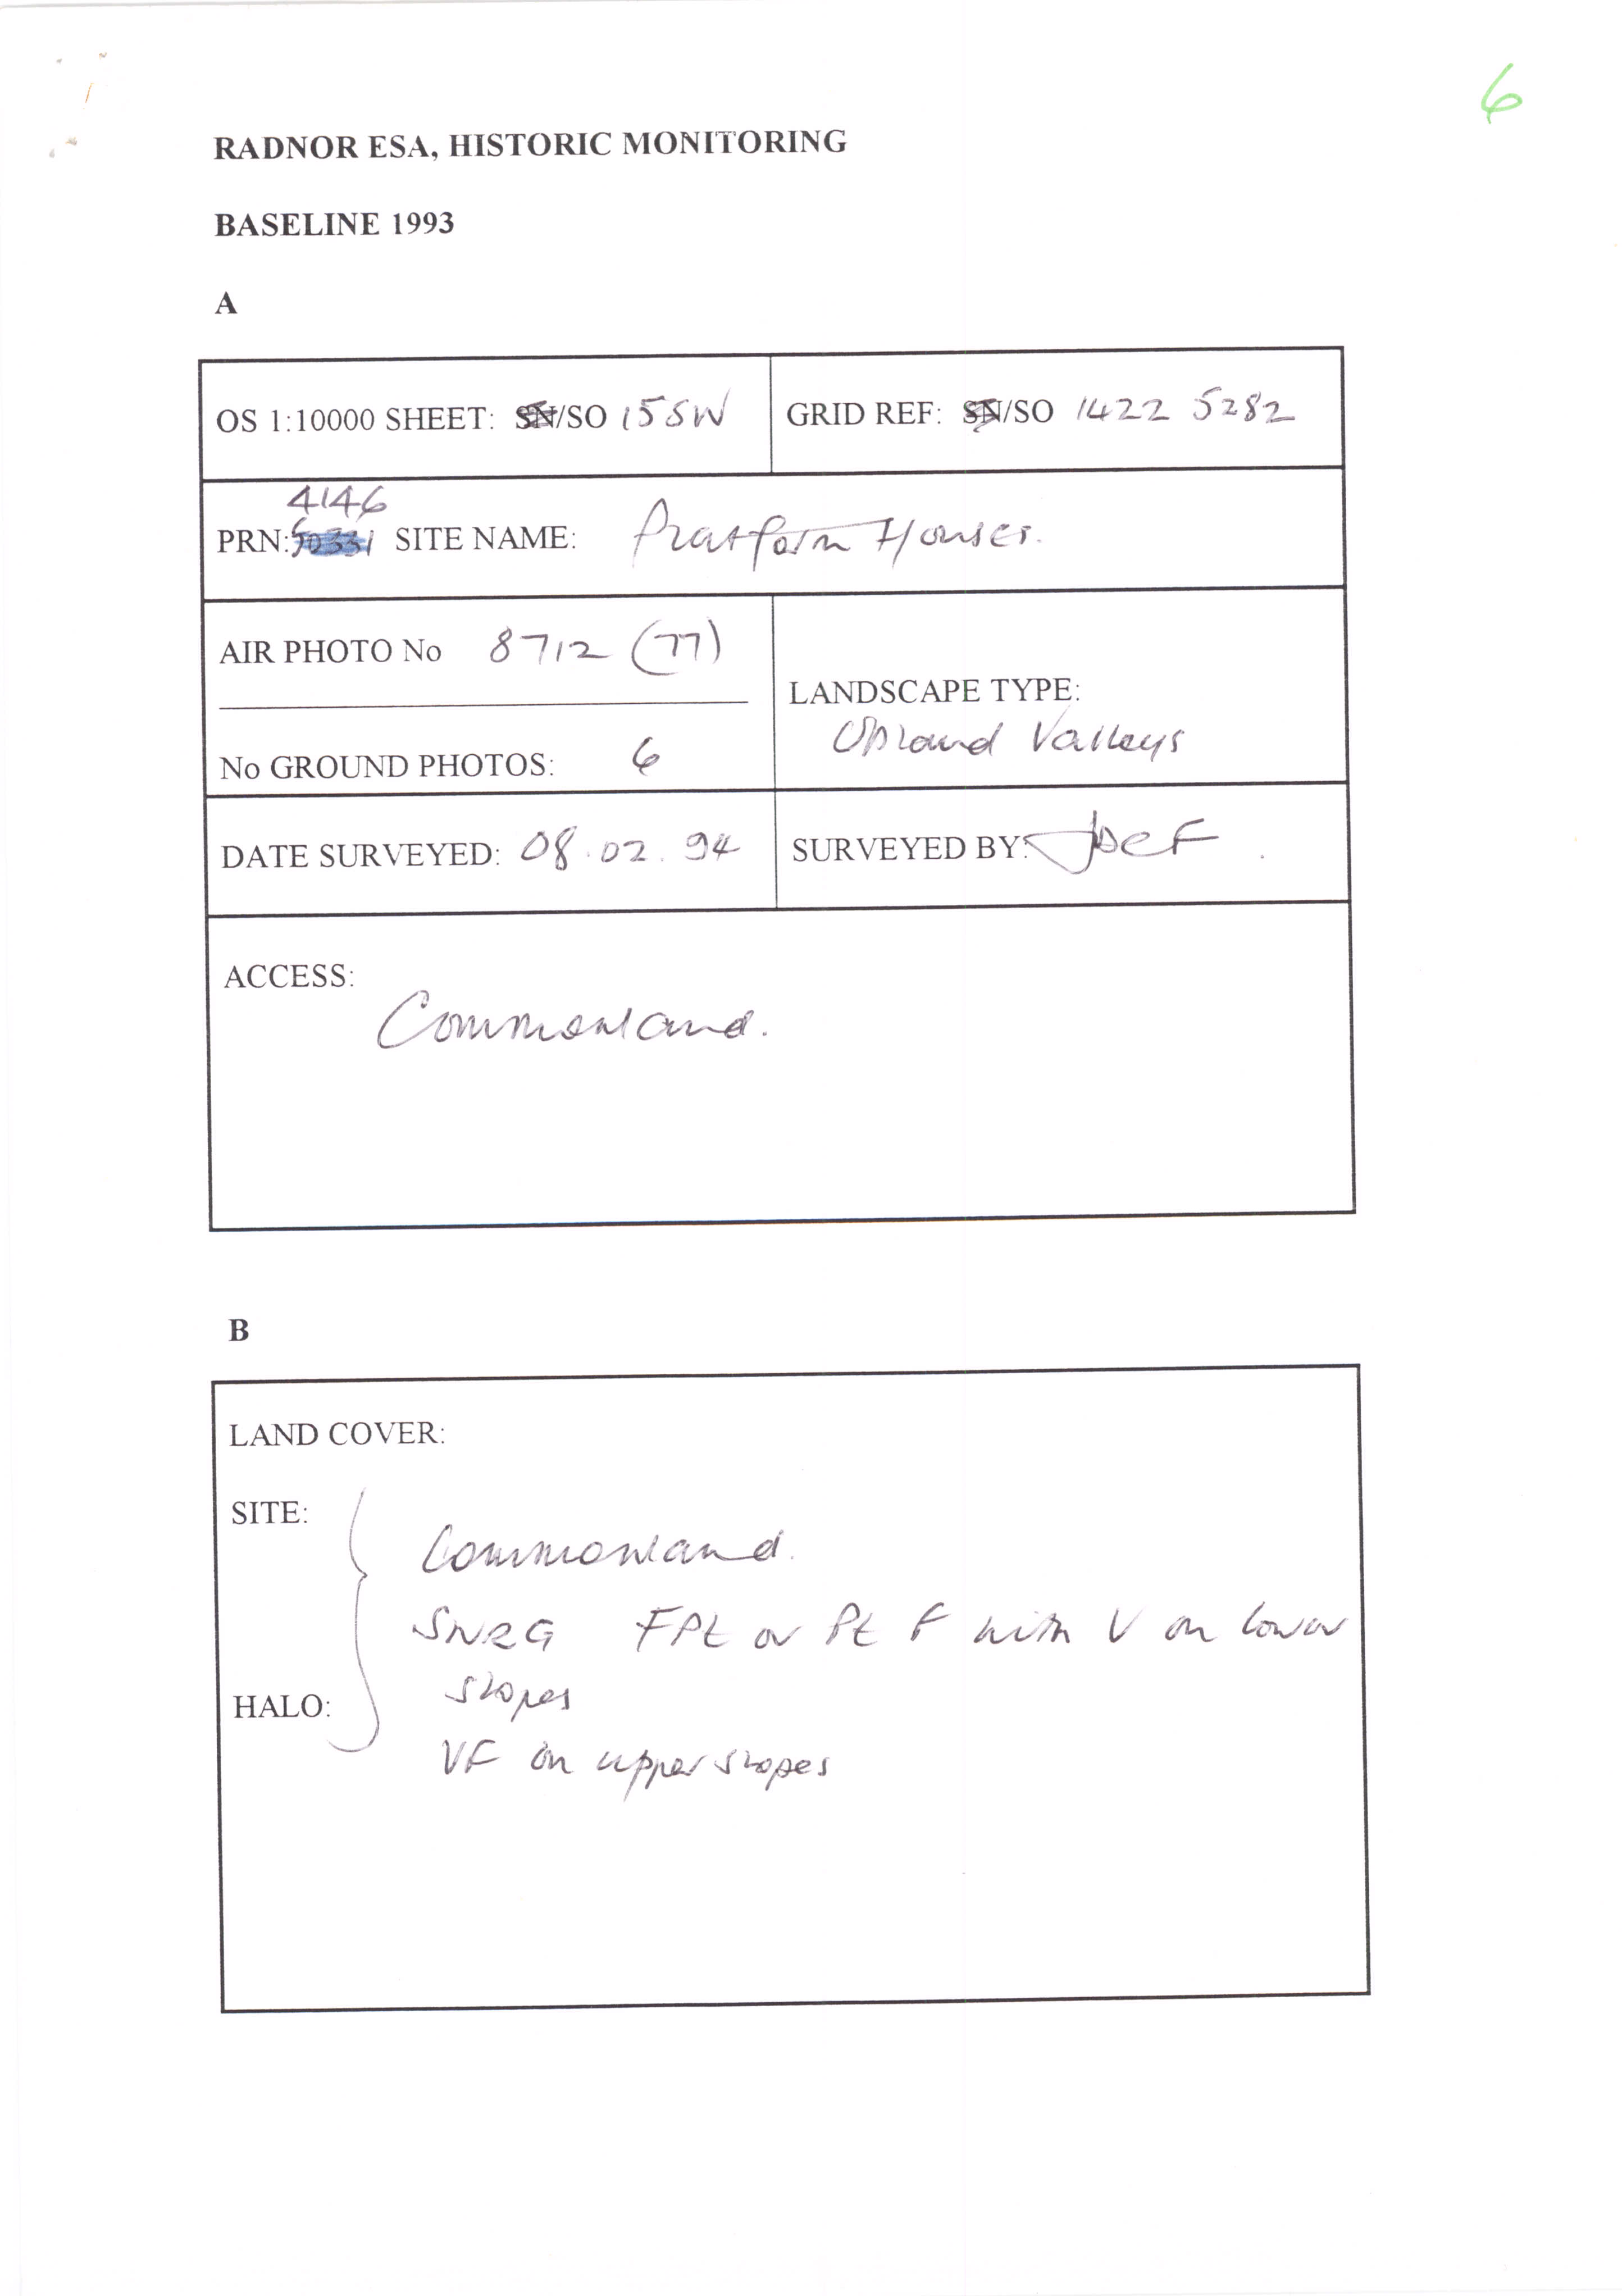 6
RADNOR ESA, HISTORIC MONITORING
BASELINE 1993
A
OS 1:10000 SHEET: SN/SO 15SW
GRID REF: SN/SO 1422 5282
4146
PRN: 50331 SITE NAME: Platform Houses.
AIR PHOTO No 8712 (77)
No GROUND PHOTOS: 6
LANDSCAPE TYPE:
Upland Valleys
DATE SURVEYED: 08.02.94
SURVEYED BY:
ACCESS:
Commonland.
B
LAND COVER:
SITE:
Commonland.
SNRG FPt or Pt F with V on lower
slopes
HALO:
VF on upper slopes